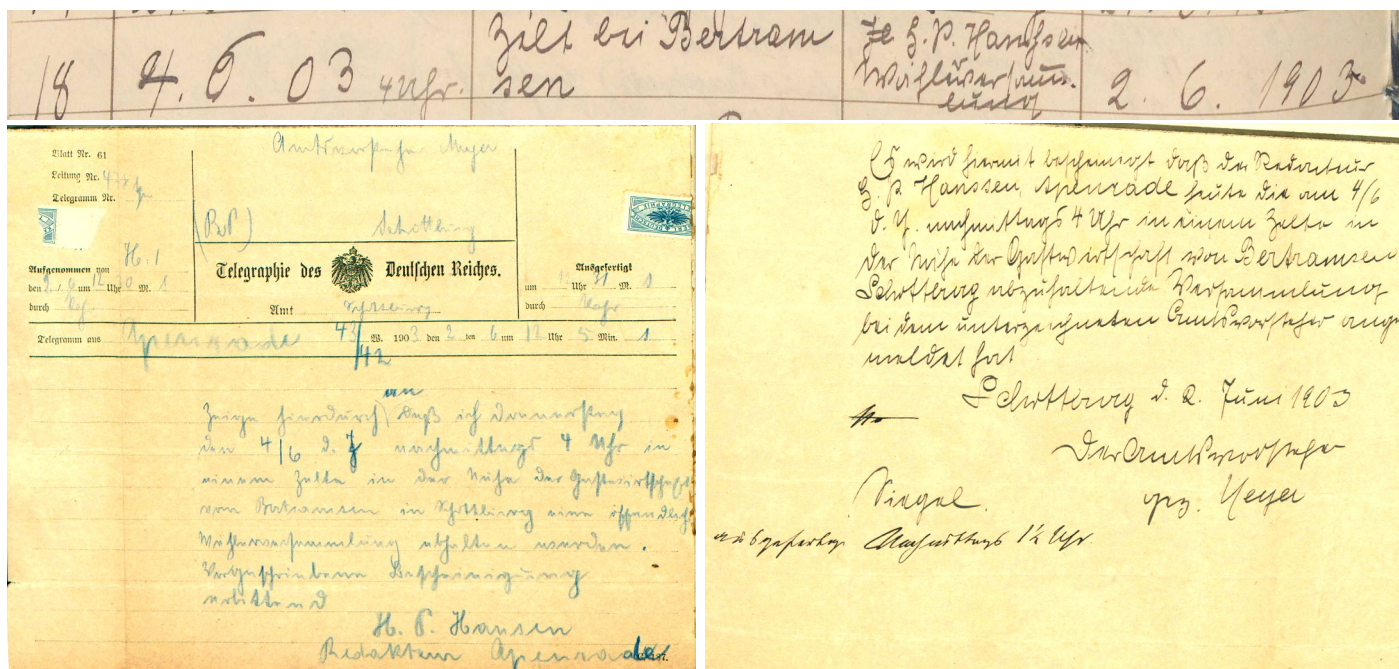 18 4. 6. 03 4 Uhr. Zelt bei Bertram
sen
H. P. Hanssen
Wählerversamm-
lung
2. 6. 1903
Amtsvorsteher Meyer
Blatt Nr. 61
Leitung Nr. 47
Telegramm Nr.
(RP) Schottburg
Telegraphie des Deutschen Reiches.
Aufgenommen von
den 2/6 um 12 Uhr 30 M. 1
durch
Ausgefertigt
um 12 Uhr 31 M. 1
durch
Amt Schottburg
Telegramm aus Apenrade 43/42 W. 1903 den 2 ten 6 um 12 Uhr 5 Min. 1
an
Zeige hierdurch, daß ich Donnerstag
den 4/6 d. J nachmittags 4 Uhr in
einem Zelte in der Nähe der Gastwirtschaft
von Bertramsen in Schottburg eine öffentliche
Wählerversammlung abhalten werden.
Vorgeschriebene Bescheinigung
erbittend
H. P. Hansen
Redakteur Apenrade
Es wird hiermit bescheinigt daß der Redacteur
H. P. Hanssen Apenrade heute die am 4/6
d. J. nachmittags 4 Uhr in einem Zelte in
der Nähe der Gastwirtschaft von Bertramsen
Schottburg abzuhaltende Versammlung
bei dem unterzeichneten Amtsvorsteher ange
meldet hat
Schottburg d. 2. Juni 1903
Der Amtsvorsteher
Siegel. gez. Meyer
ausgefertigt Nachmittags 1½ Uhr